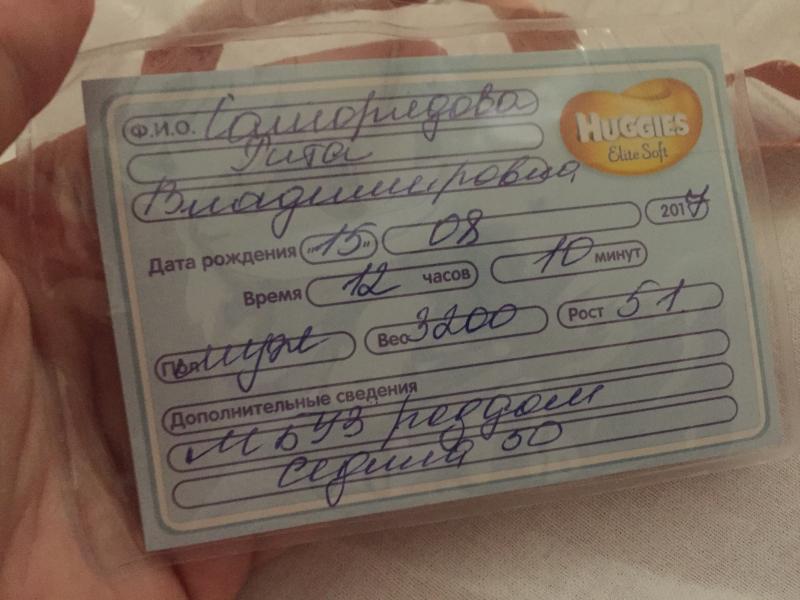 Ф.И.О.
HUGGIES
Elite Soft
Рита
Владимировна
Дата рождения „15" 08 2017
Время 12 часов 10 минут
Пол муж Вес 3200 Рост 51
Дополнительные сведения
МБУЗ роддом
50